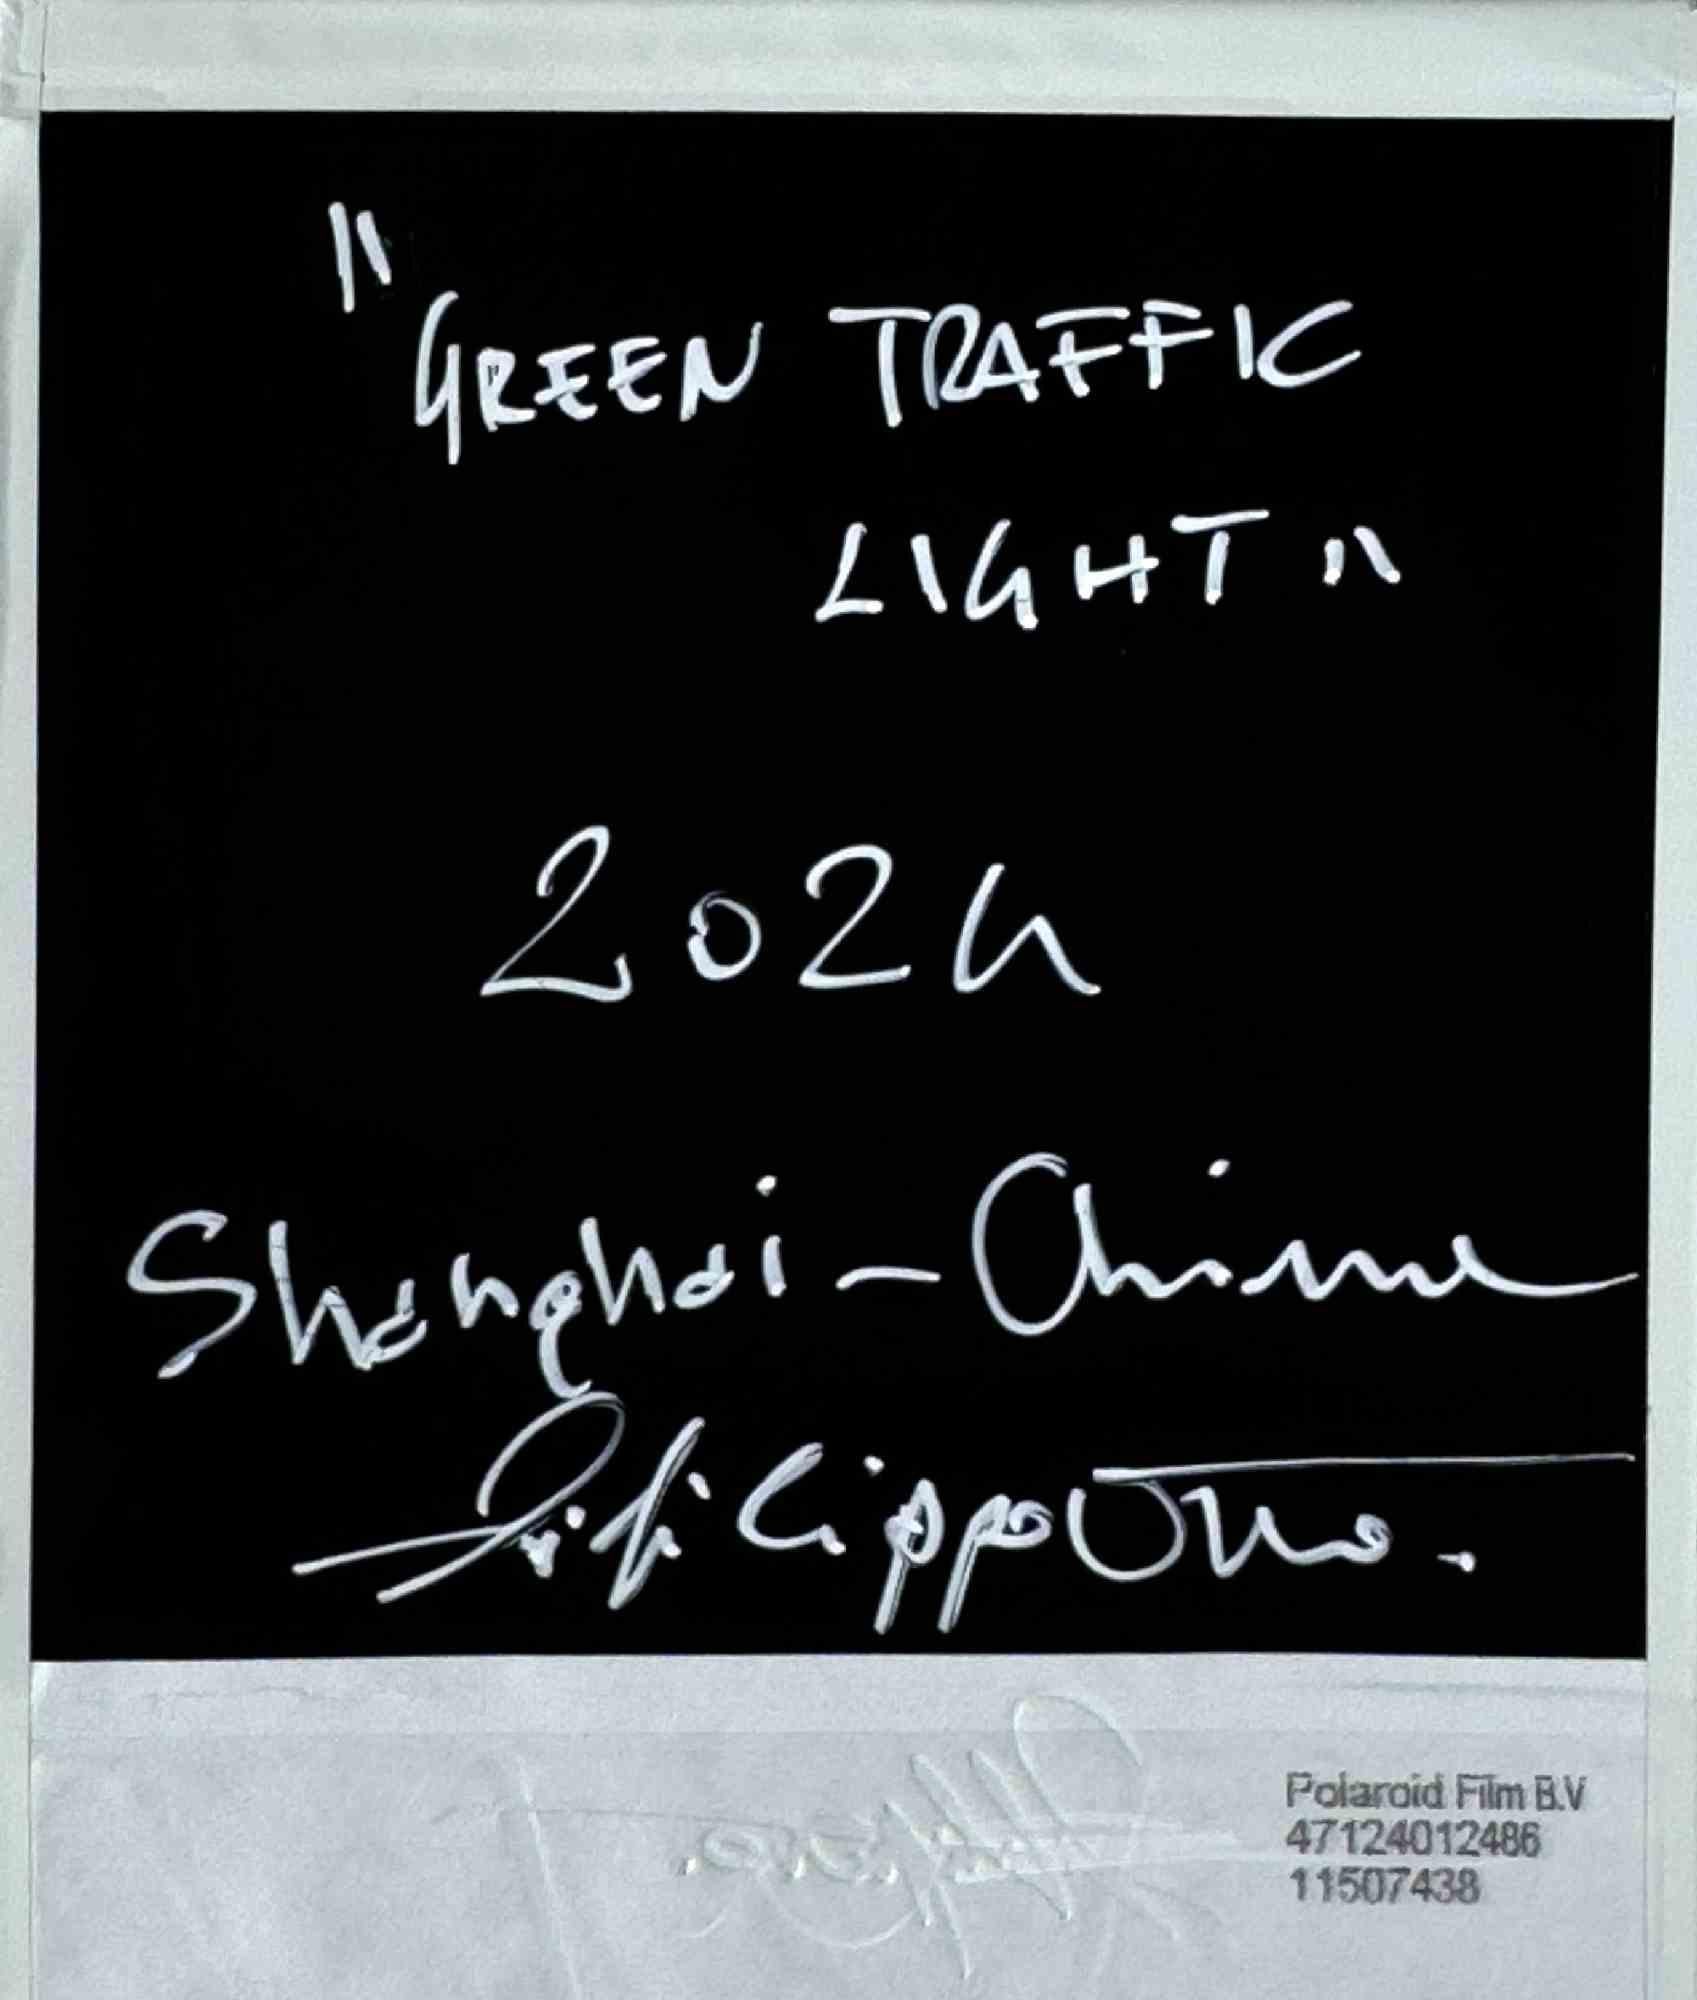 "GREEN TRAFFIC
LIGHT"
2024
Shanghai - Chine
Polaroid Film B.V
47124012486
11507438